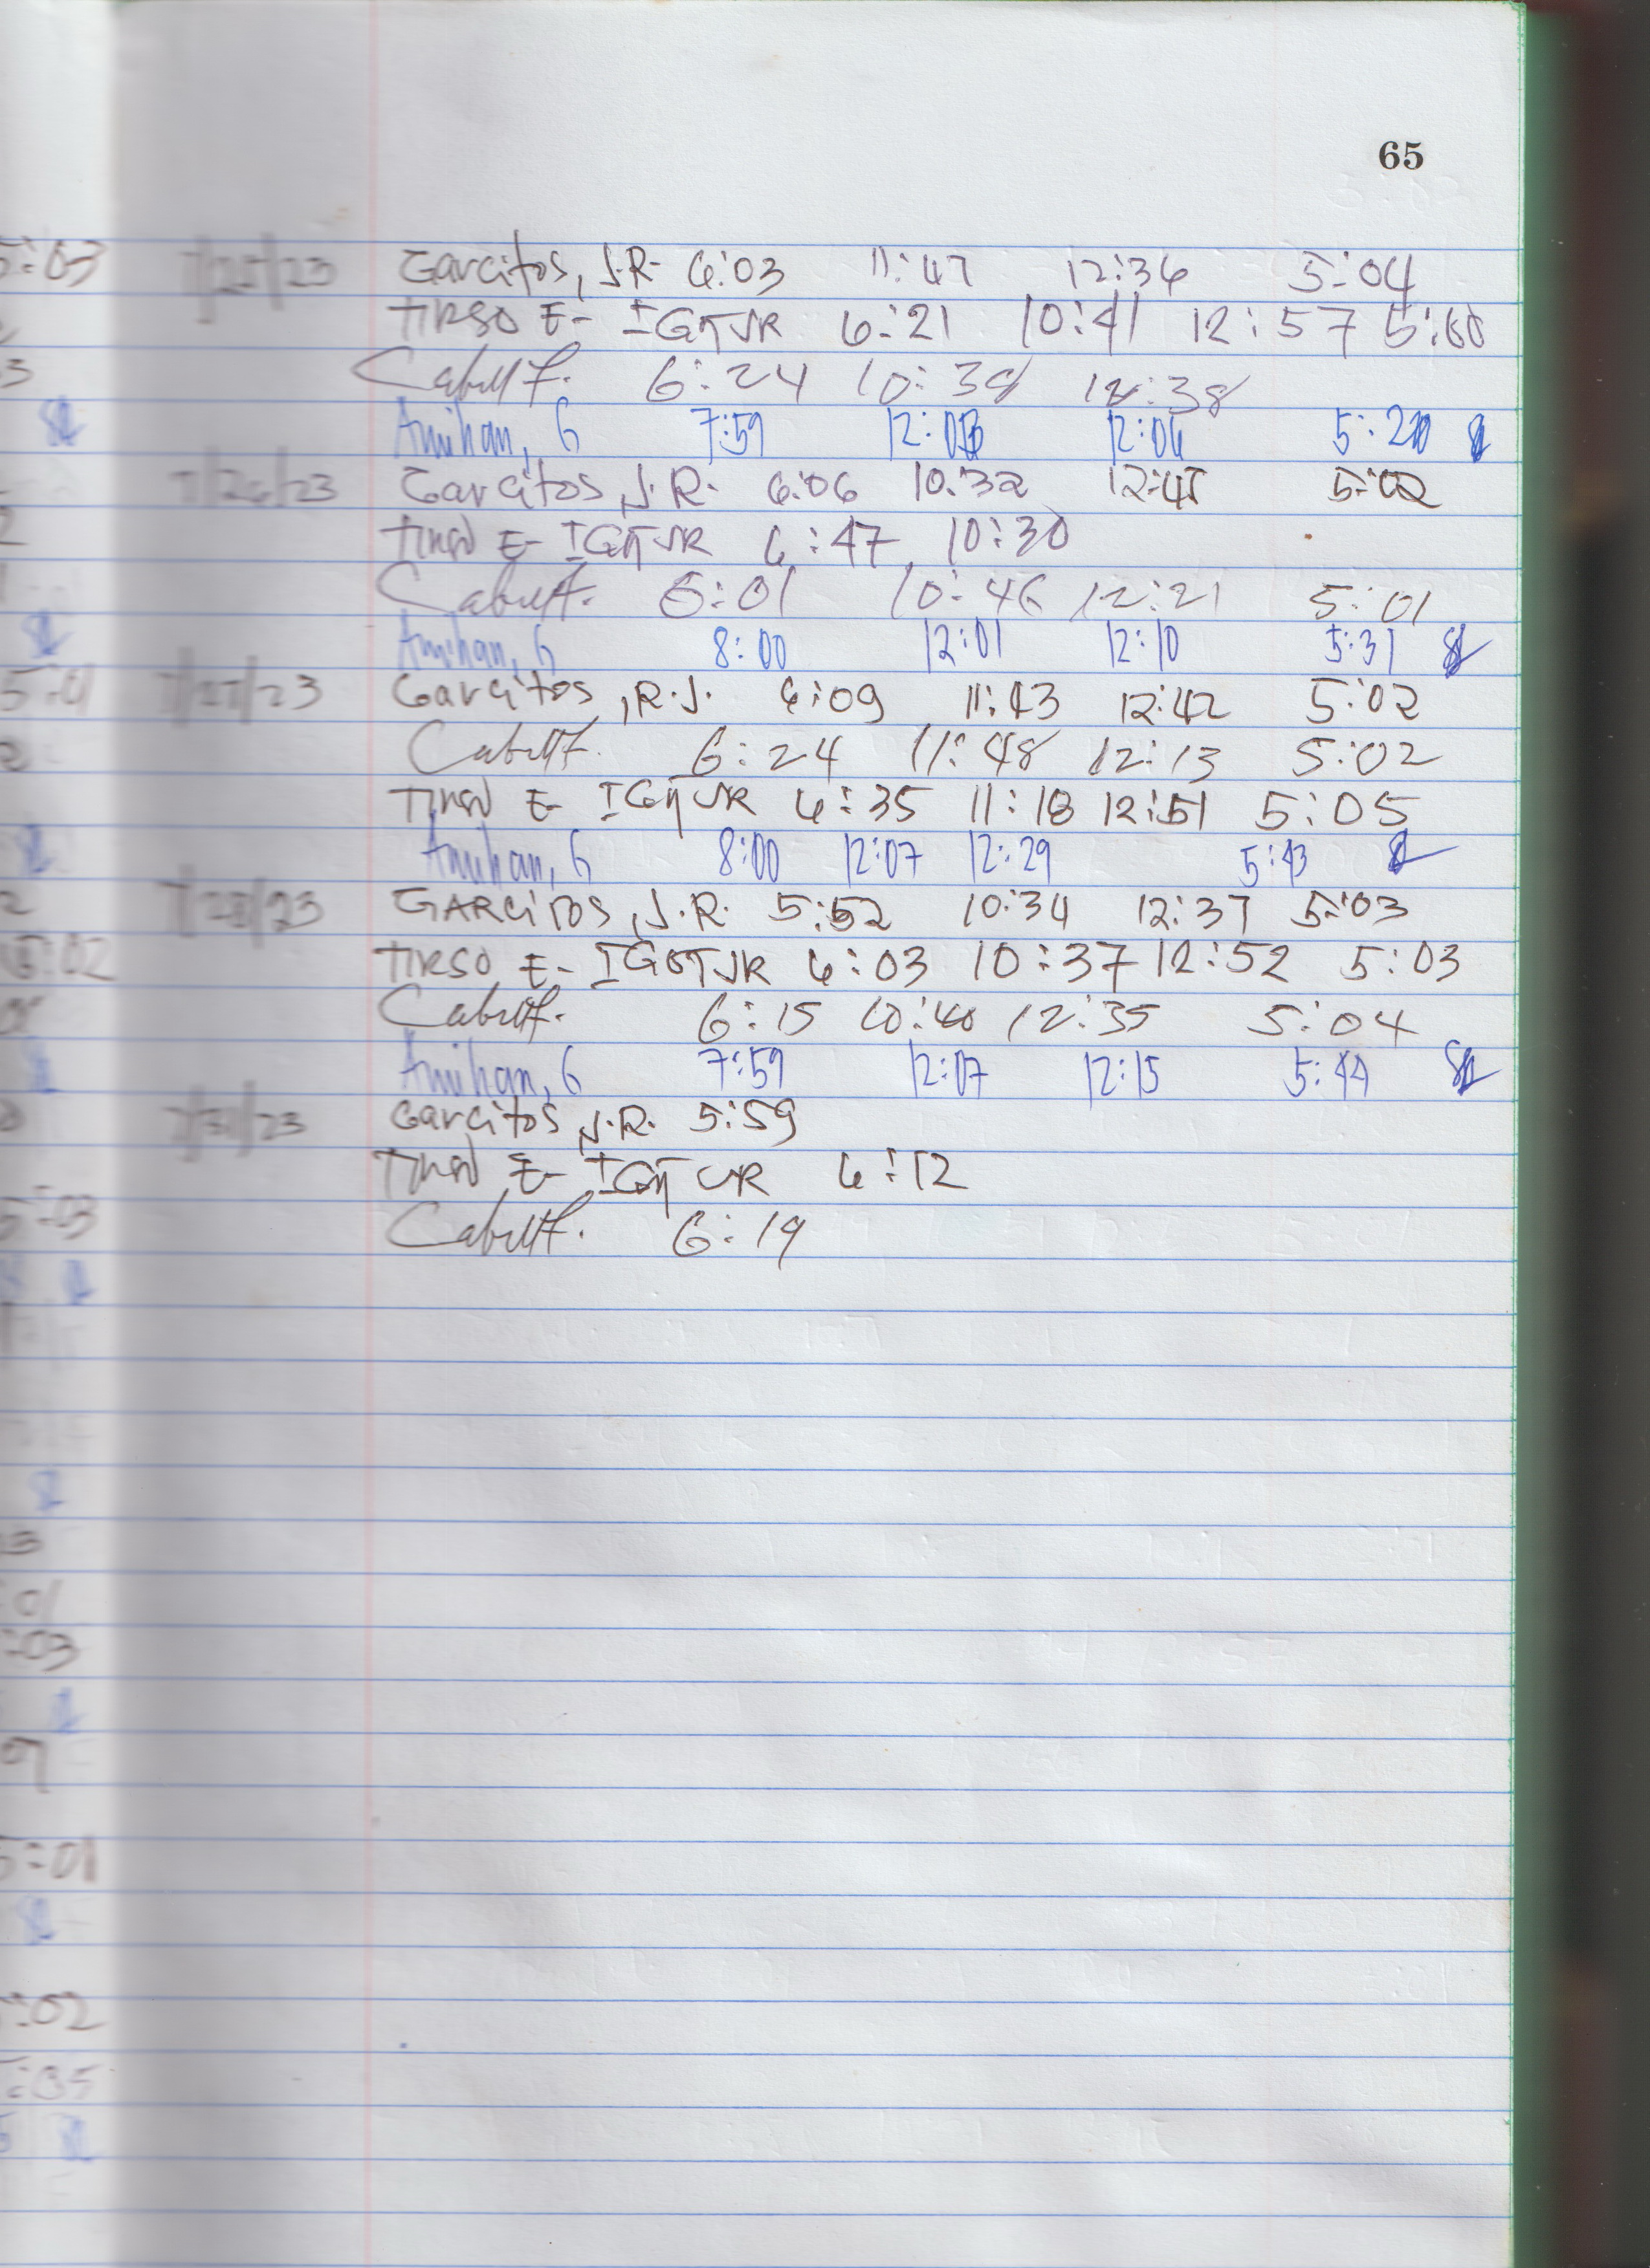 65
7/25/23 Garcitos, J.R. 6:03 11:47 12:36 5:04
TIRSO E- IGOT JR 6:21 10:41 12:57 5:00
6:24 10:38 12:38
Amihan, G 7:59 12:03 12:06 5:20
7/26/23 Garcitos, J.R. 6:06 10:32 12:45 5:02
TIRSO E- IGOT JR 6:47 10:30
6:01 10:46 12:21 5:01
Amihan, G 8:00 12:01 12:10 5:31
7/27/23 Garcitos, R.J. 6:09 11:43 12:42 5:02
6:24 11:48 12:13 5:02
TIRSO E- IGOT JR 6:35 11:18 12:51 5:05
Amihan, G 8:00 12:07 12:29 5:43
7/28/23 GARCITOS, J.R. 5:52 10:34 12:37 5:03
TIRSO E- IGOT JR 6:03 10:37 12:52 5:03
6:15 10:40 12:35 5:04
Amihan, G 7:59 12:07 12:15 5:44
7/31/23 Garcitos, J.R. 5:59
TIRSO E- IGOT JR 6:12
6:19